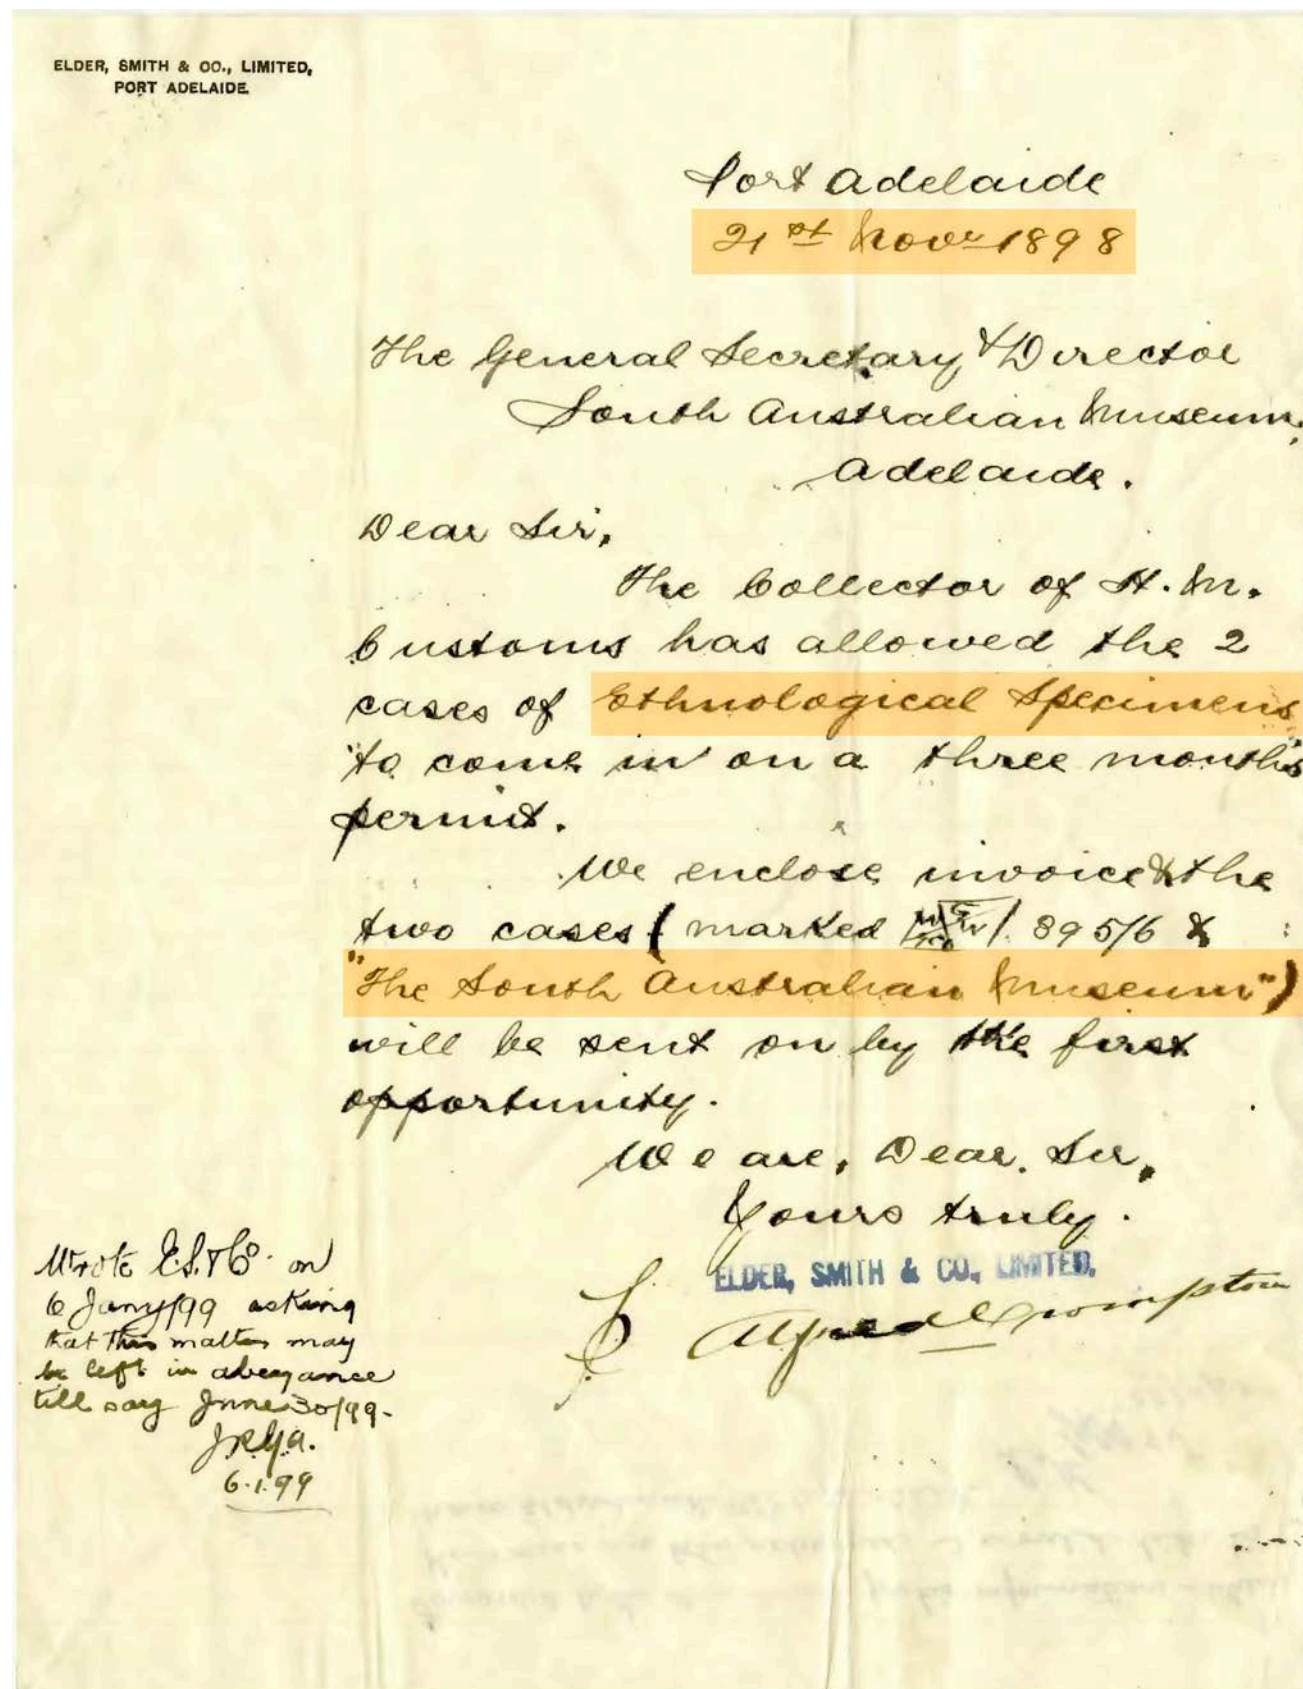 ELDER, SMITH & CO., LIMITED,
PORT ADELAIDE.
Port Adelaide
21st Novr 1898
The General Secretary & Director
South Australian Museum,
Adelaide.
Dear Sir,
The Collector of H. M.
Customs has allowed the 2
cases of Ethnological Specimens
to come in on a three months
permit.
We enclose invoice & the
two cases (marked / 895/6 &
"The South Australian Museum")
will be sent on by the first
opportunity.
We are, Dear Sir,
Yours truly.
ELDER, SMITH & CO., LIMITED.
Alfred Crompton
Wrote E.S. & Co. on
6 Jany/99 asking
that this matter may
be left in abeyance
till say June 30/99-
6.1.99